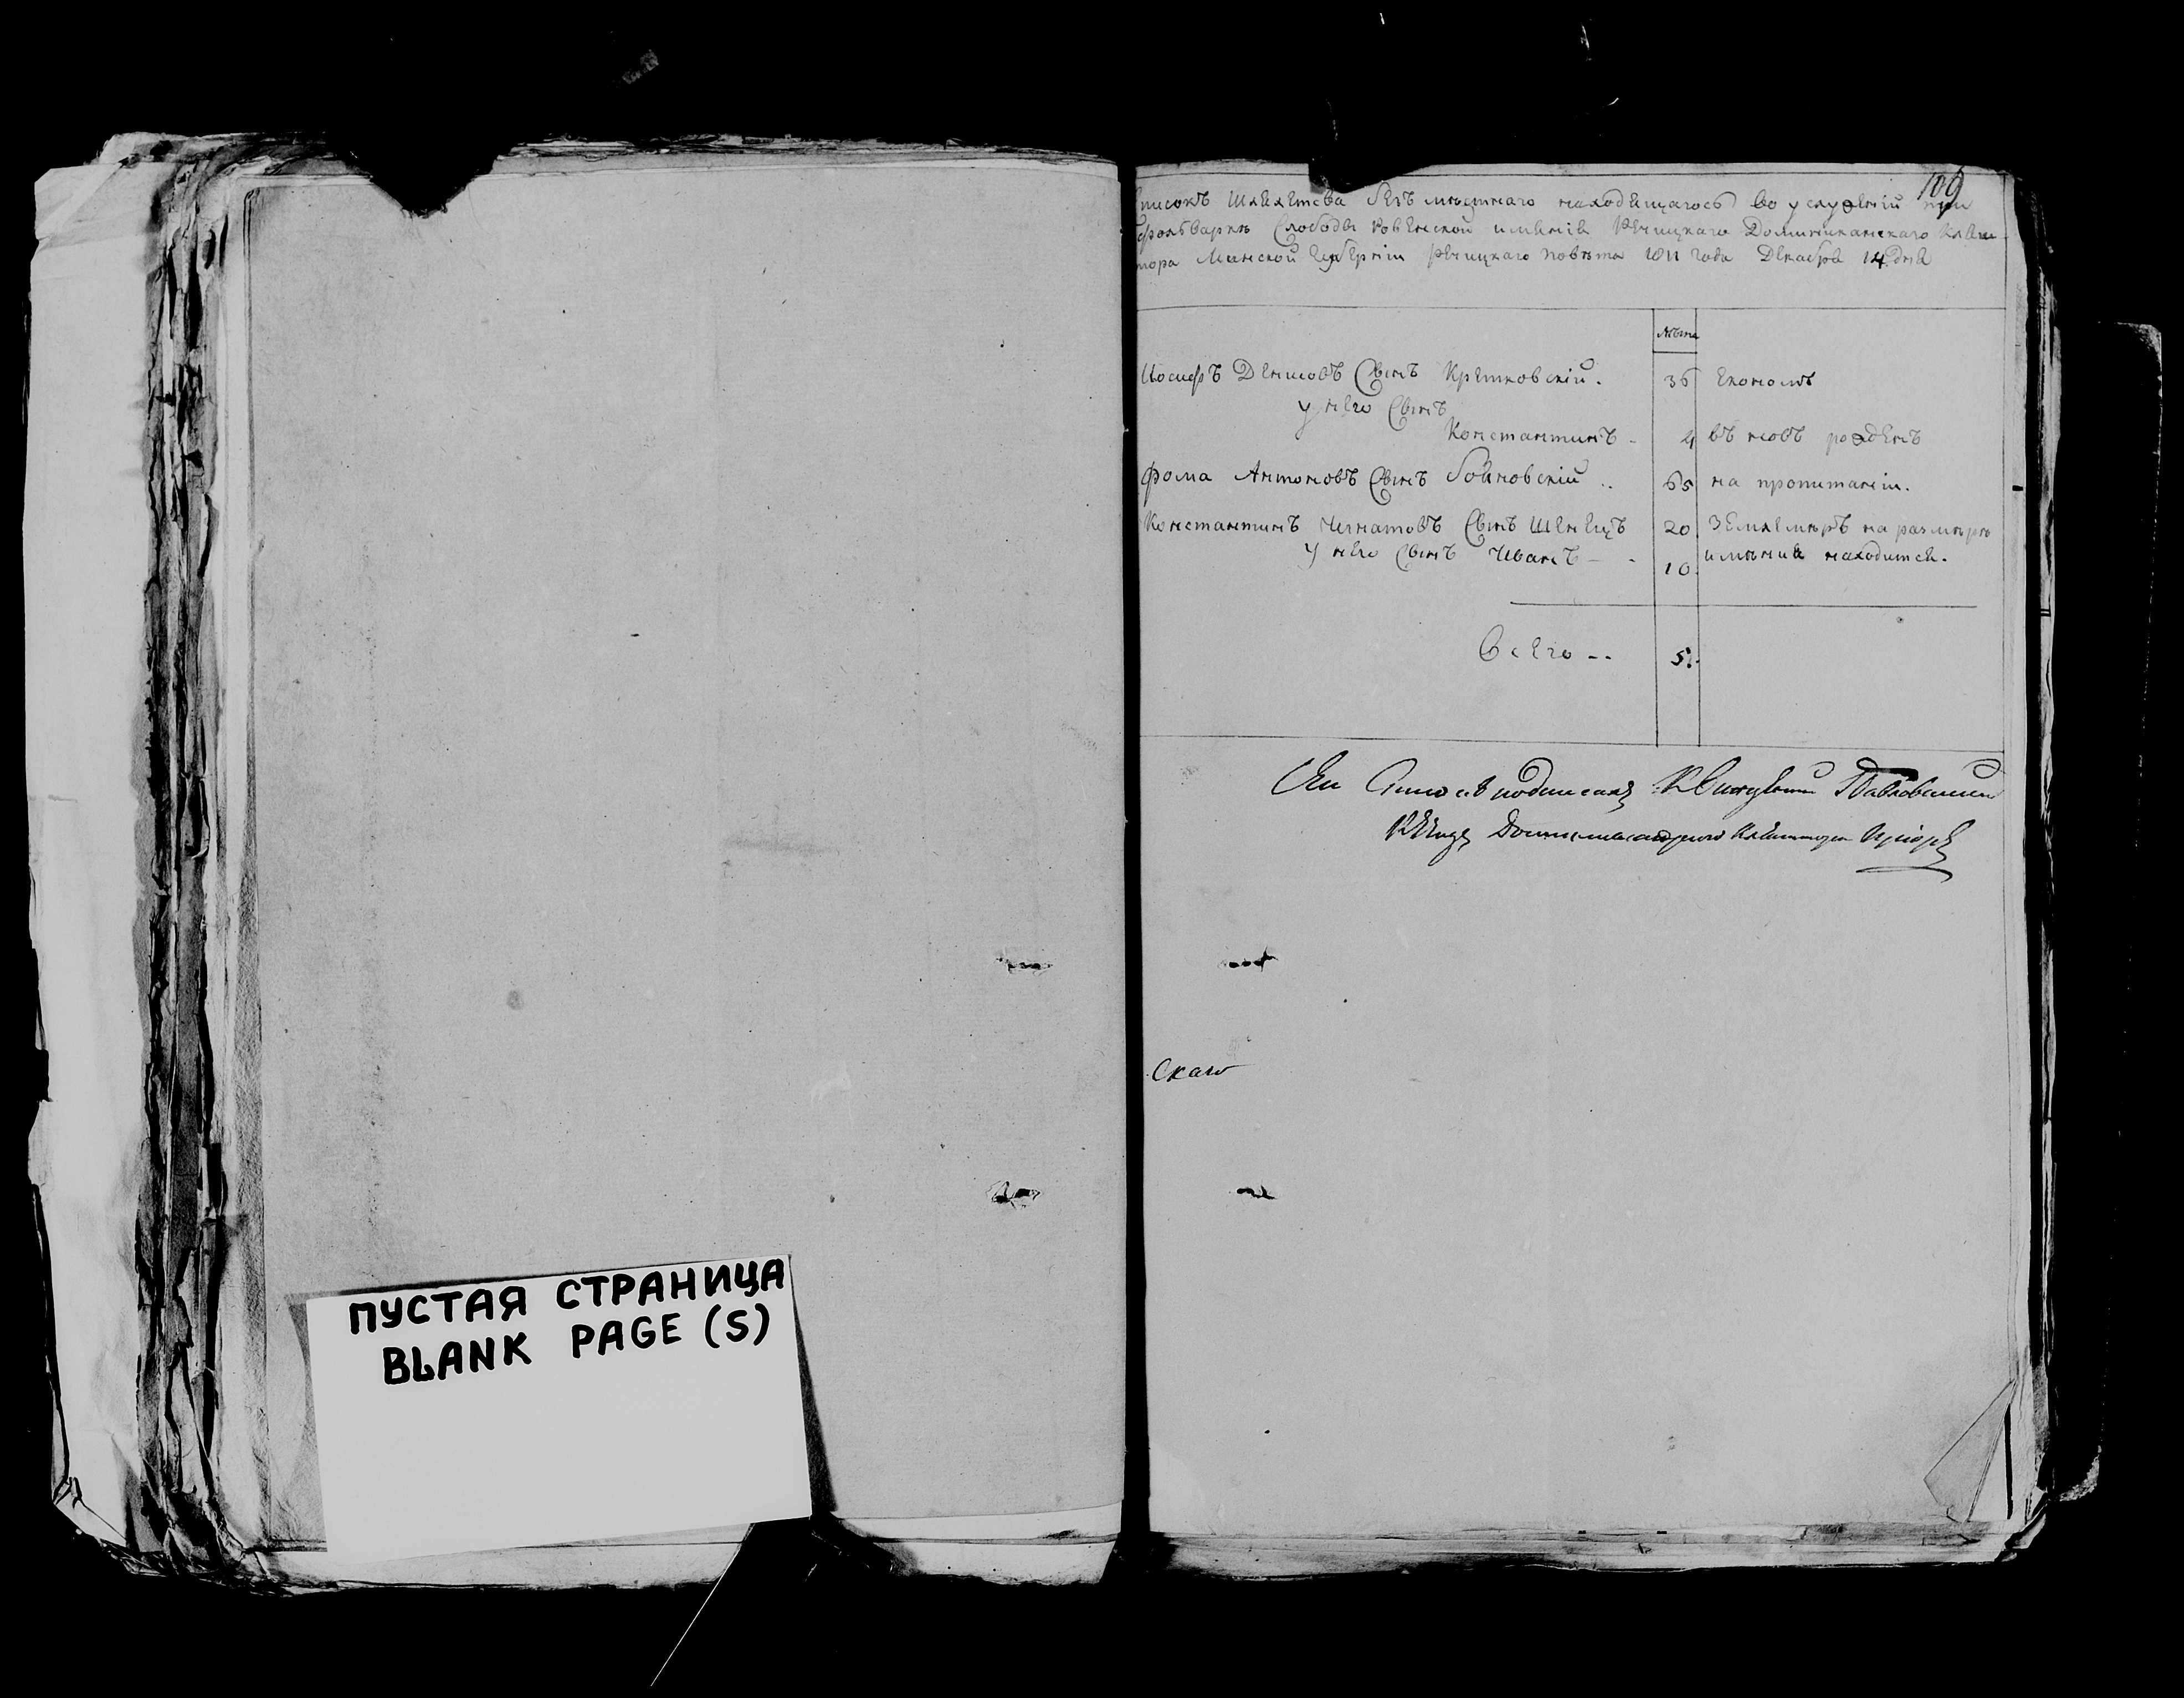 ПУСТАЯ СТРАНИЦА
BLANK PAGE (S)
109
Списокъ Шляхетства безъ местнаго находящагось во услужѣніи при
фольваркѣ Слободы Ровенской имѣнія Речицкаго Доминиканскаго Кляш-
тора Минской Губерніи Речицкаго повѣта 1811 года Декабря 14 дня
лѣта
Иосифъ Денисовъ Сынъ Кретковскій. 36 Економъ
у него Сынъ
Константинъ - 4 въ новъ рожденъ
Фома Антоновъ Сынъ Бойновскій .. 65 на пропитаніи.
Константинъ Игнатовъ Сынъ Шенецъ 20 Землемѣръ на размѣрѣ
у него Сынъ Иванъ - - 10 имѣния находится.
Всего -- 5.
подписалъ
Доминиканскаго Кляштора Приоръ
скаго